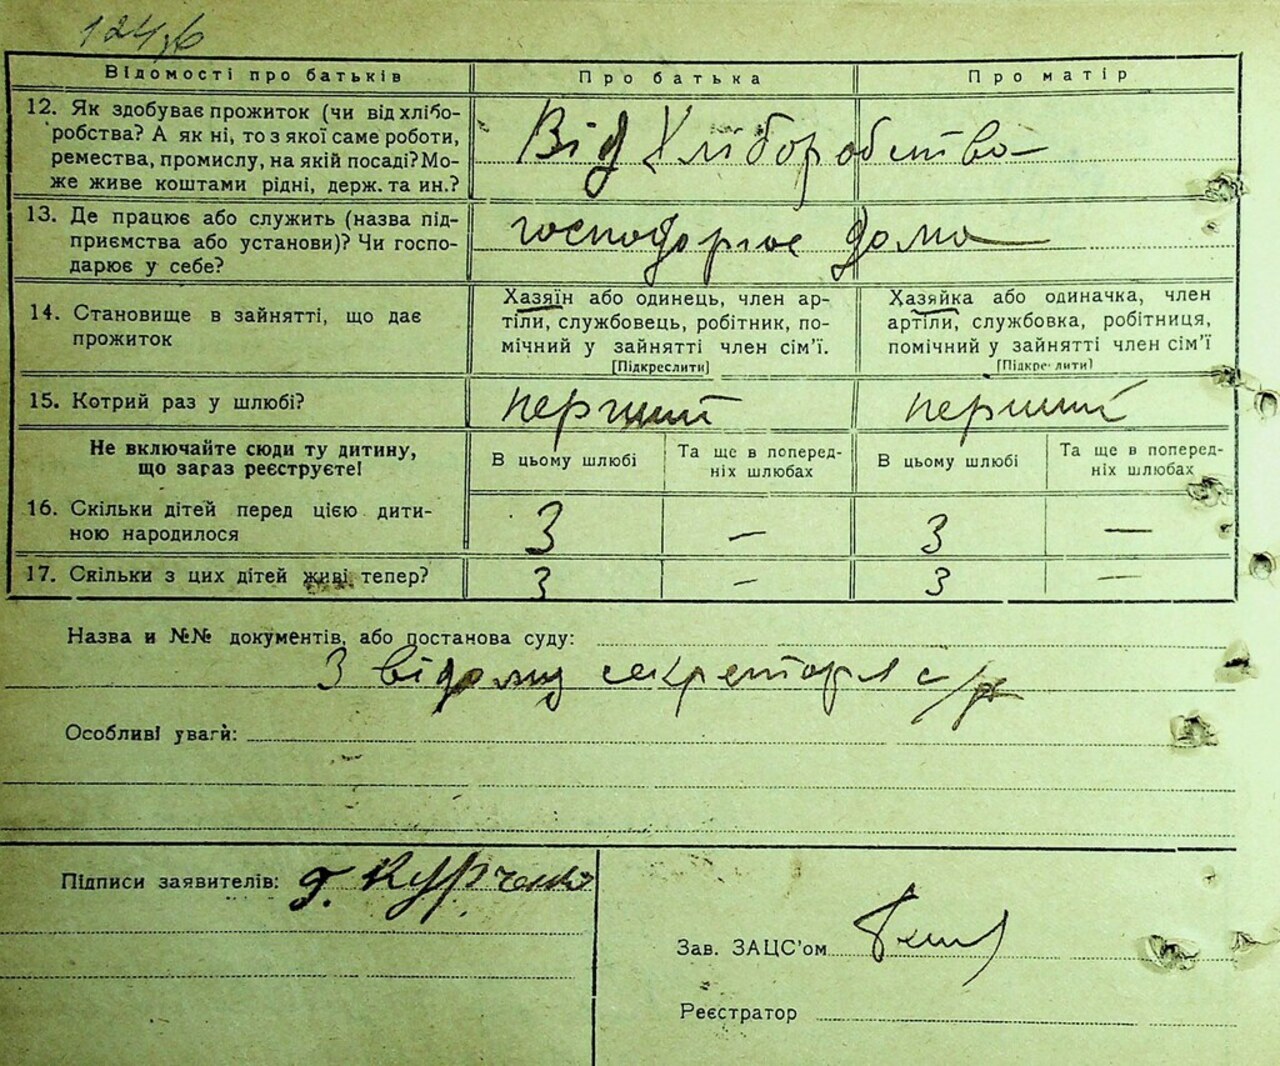 124зб
Відомості про батьків Про батька Про матір
12. Як здобуває прожиток (чи від хлібо-
робства? А як ні, то з якої саме роботи,
ремества, промислу, на якій посаді? Мо-
же живе коштами рідні, держ. та ин.?
Від Хліборобства
13. Де працює або служить (назва під-
приємства або установи)? Чи госпо-
дарює у себе?
господарює дома
14. Становище в зайнятті, що дає
прожиток
Хазяїн або одинець, член ар-
тіли, службовець, робітник, по-
мічний у зайнятті член сім'ї.
[Підкреслити]
Хазяйка або одиначка, член
артіли, службовка, робітниця,
помічний у зайнятті член сім'ї
[Підкреслити]
15. Котрий раз у шлюбі? перший перший
Не включайте сюди ту дитину,
що зараз реєструєте!
В цьому шлюбі
Та ще в поперед-
ніх шлюбах
В цьому шлюбі
Та ще в поперед-
ніх шлюбах
16. Скільки дітей перед цією дити-
ною народилося
3 — 3 —
17. Скільки з цих дітей живі тепер? 3 — 3 —
Назва и №№ документів, або постанова суду:
З відому секретаря с/р
Особливі уваги:
Підписи заявителів: Курченко
Зав. ЗАЦС'ом
Реєстратор